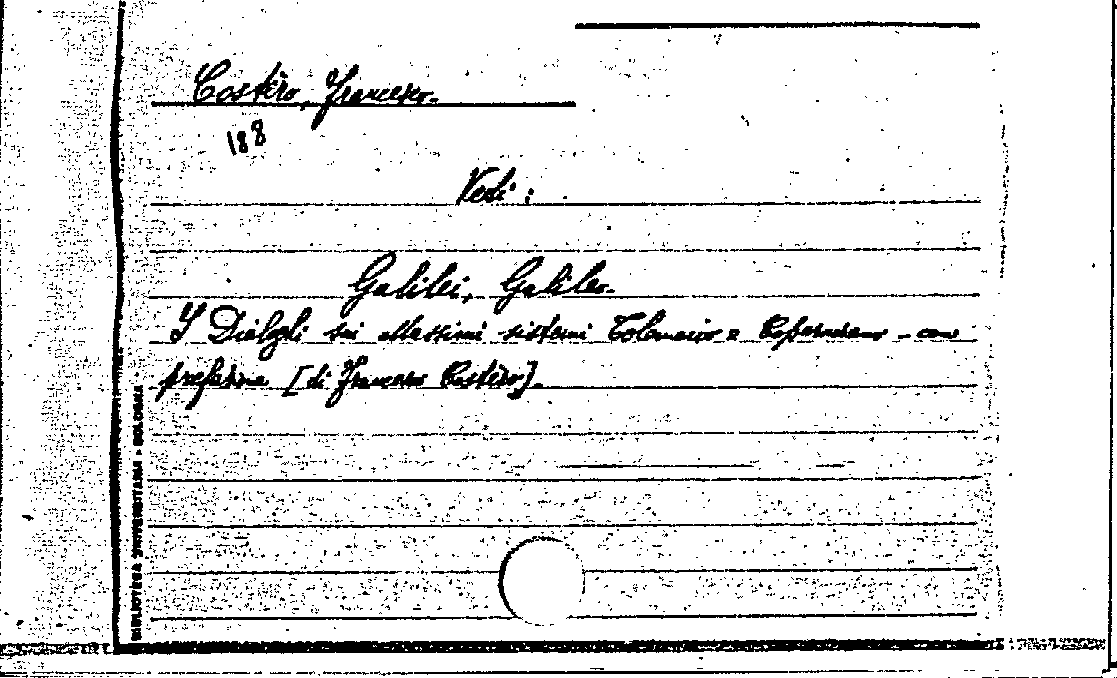 Costèro, Francesco.
188
Vedi:
Galilei, Galileo.
I Dialoghi sui massimi sistemi Tolemaico e Copernicano - con
prefazione [di Francesco Costèro].
BIBLIOTECA UNIVERSITARIA - BOLOGNA